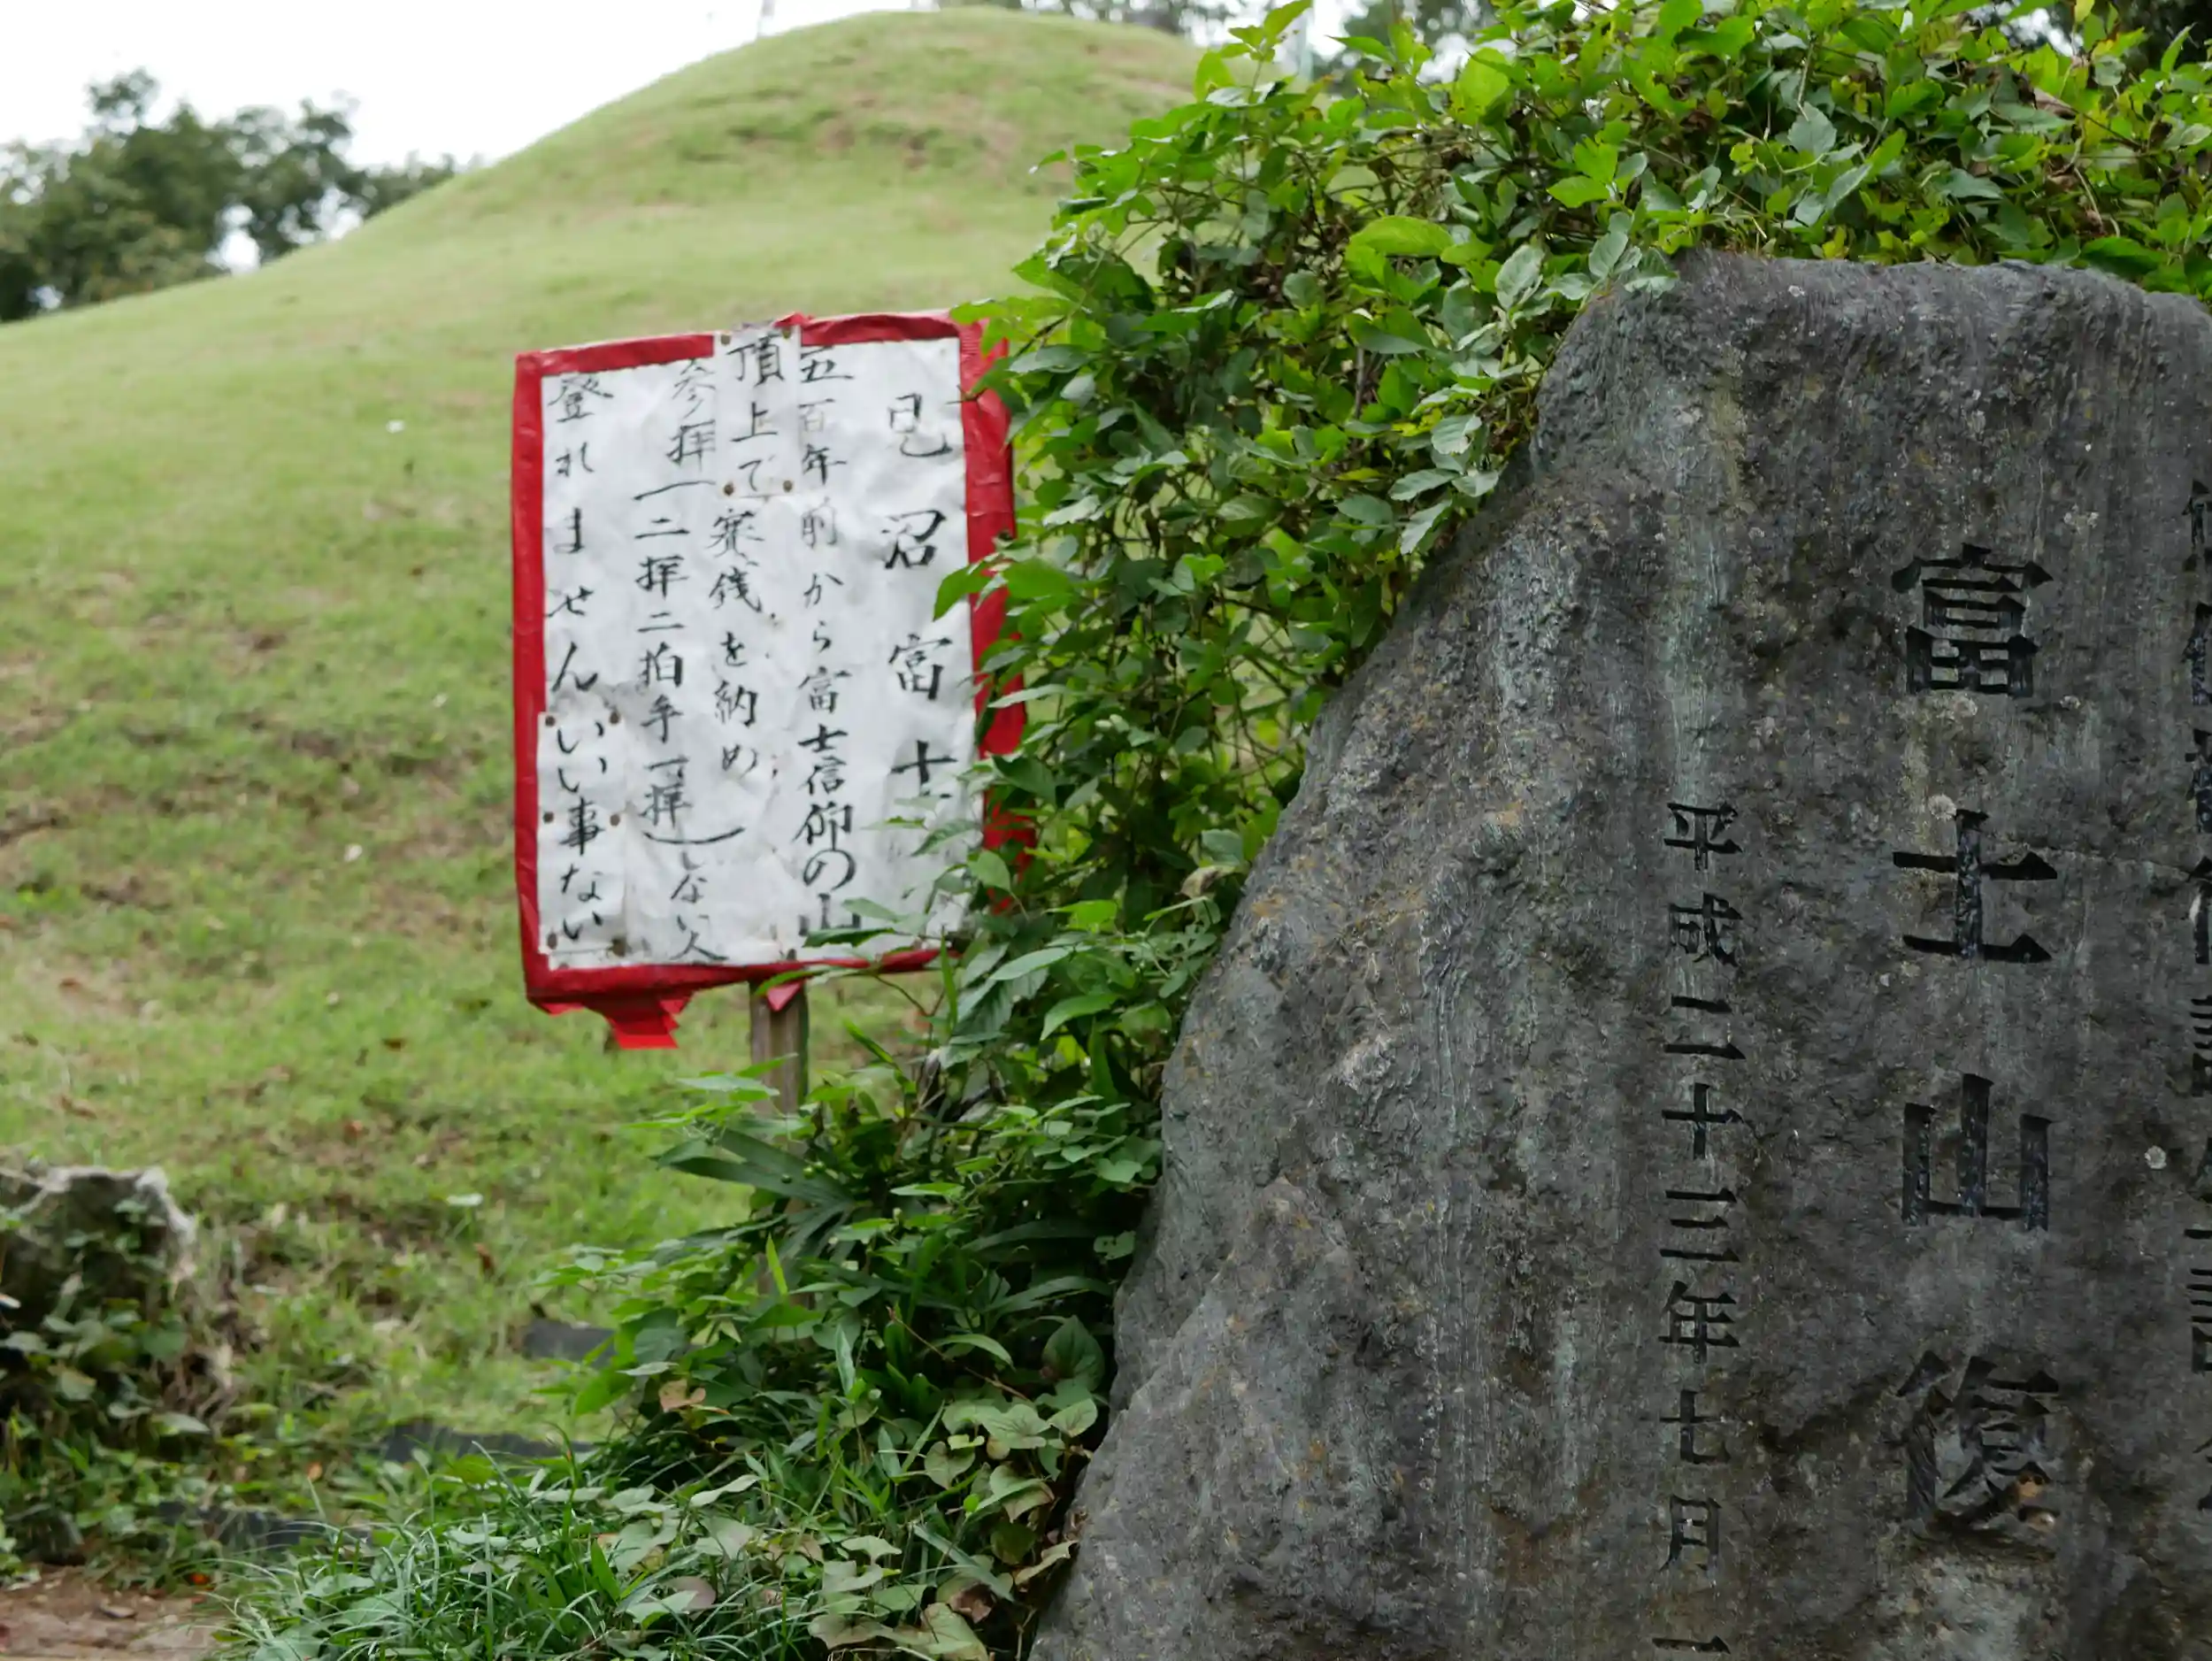 見沼富士
五百年前から富士信仰の山
頂上で賽銭を納め
参拝(二拝二拍手一拝)しない人
登れませんいい事ない
富士山復
平成二十三年七月一